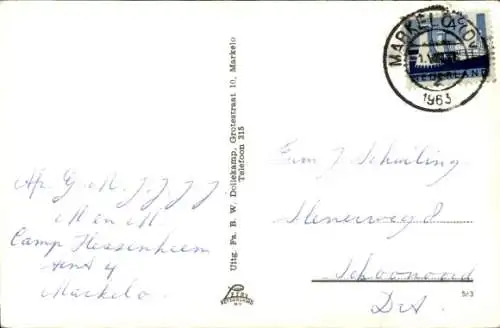 MARKELO (Ov)
1963
NEDERLAND
Af. G. M. J. J. J. J.
M en M.
Camp Hessenheem
tent 4
Markelo
Uitg. Fa. B. W. Dollekamp, Grotestraat 10, Markelo
Telefoon 315
Fam J Schuiling
8
Schoonoord
Dr.
5/3